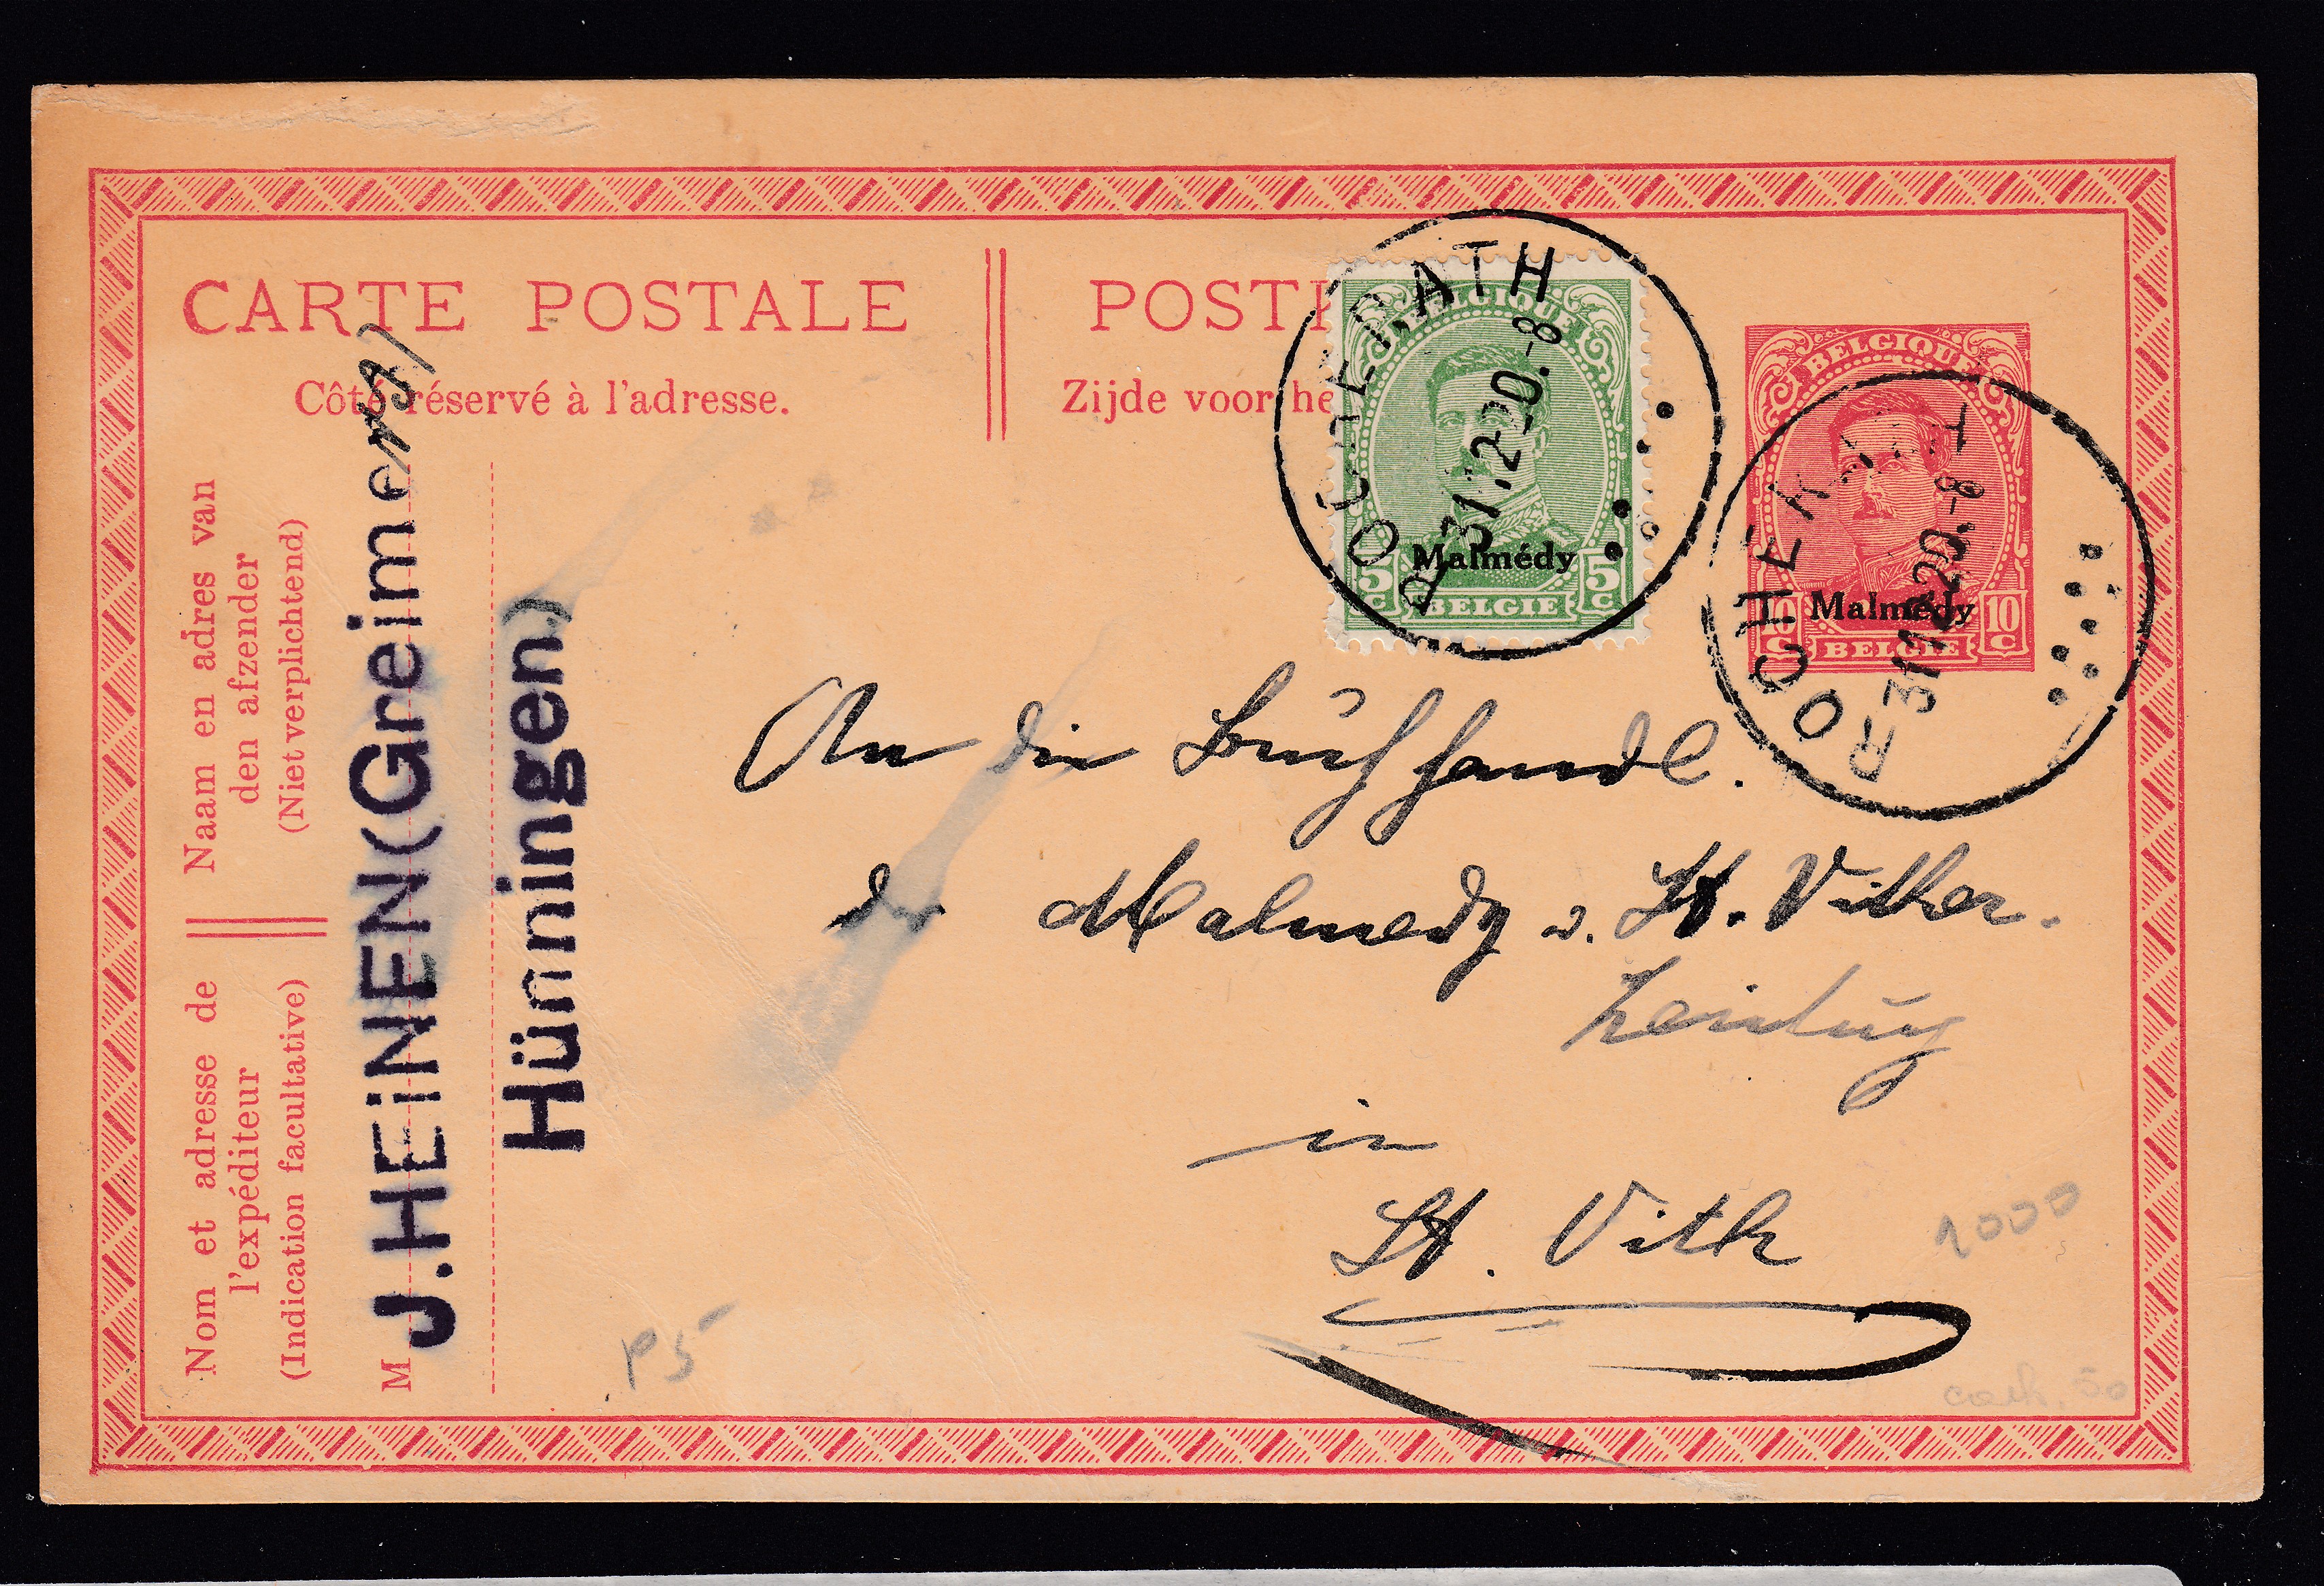 CARTE POSTALE
Côté réservé à l'adresse.
POSTK
Zijde voor he
BELGIQUE
Malmédy
5c BELGIE 5c
ROCHERATH
31.12.20.-8
BELGIQUE
Malmédy
10c BELGIE 10c
ROCHERATH
31.12.20.-8
Naam en adres van
den afzender
(Niet verplichtend)
Nom et adresse de
l'expéditeur
(Indication facultative)
M
J.HEiNEN (Greimersf)
Hünningen)
An die Buchhandl.
der Malmedy u. St. Vither-
Zeitung
in
St. Vith
1000
P5